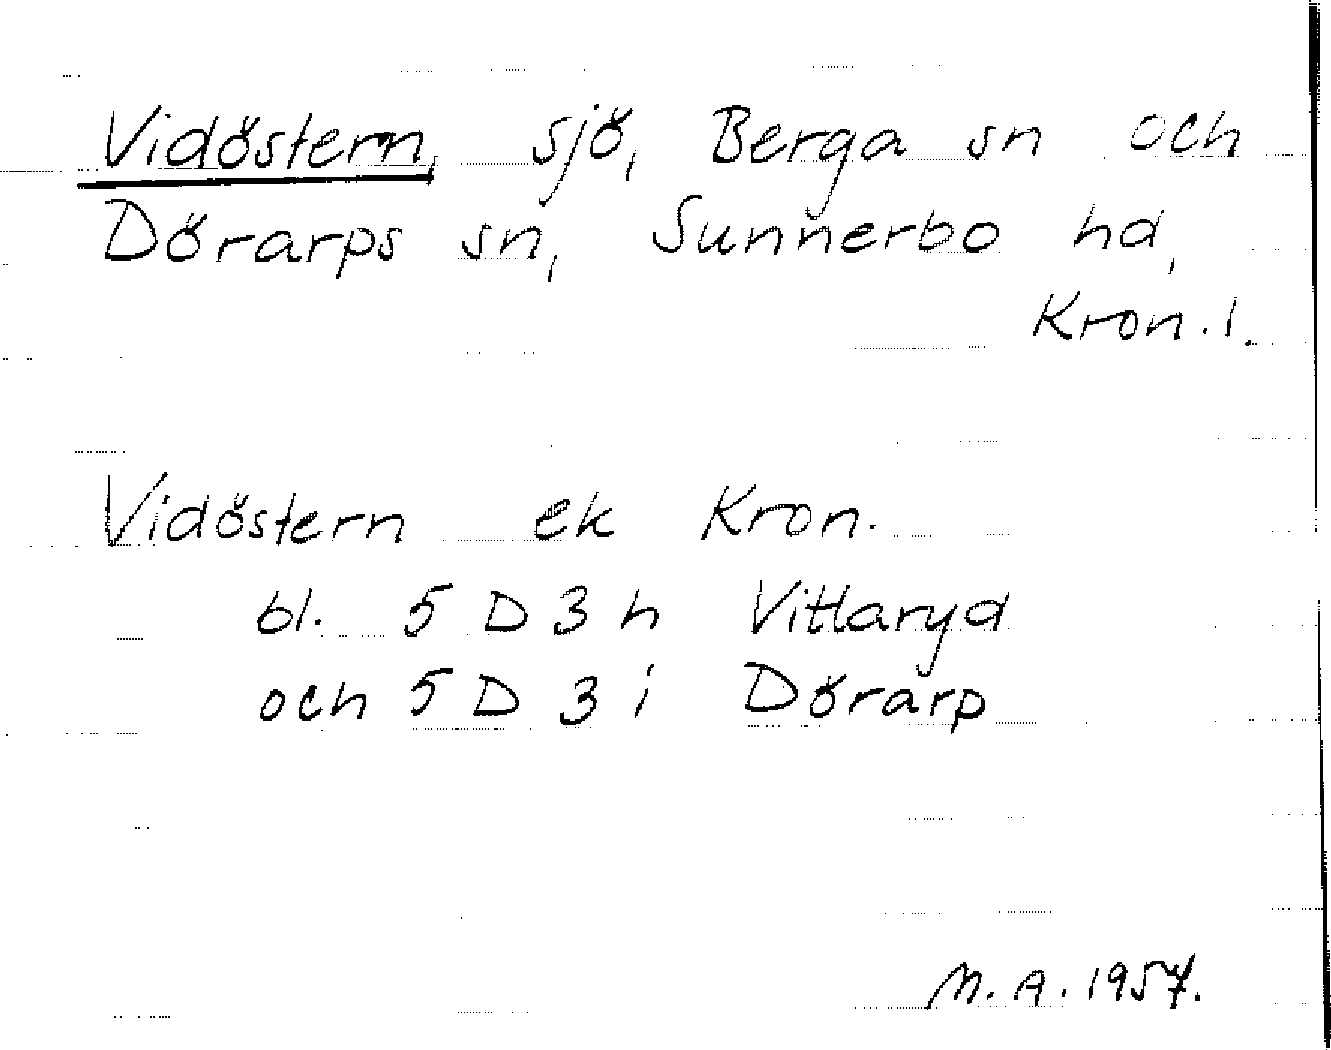 Vidöstern, sjö, Berga sn och
Dörarps sn, Sunnerbo hd,
Kron. l.
Vidöstern ek Kron.
bl. 5 D 3 h Vittaryd
och 5 D 3 i Dörarp
M. A. 1957.